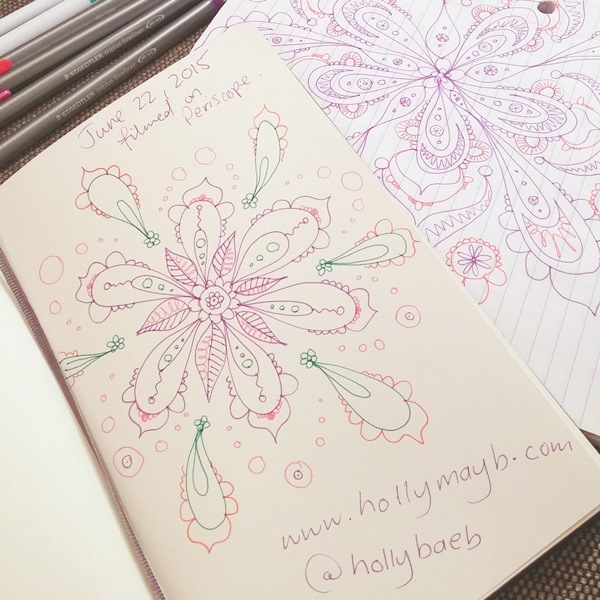 STAEDTLER triplus fineliner
STAEDTLER triplus fineliner
June 22, 2015
filmed on
Periscope.
www.hollymayb.com
@hollybaeb